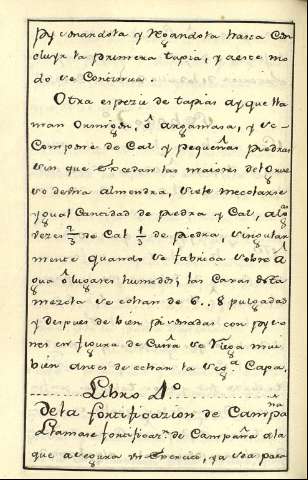 Py sonandola y Regandola hasta Con
cluyr la primera tapia, y a este mo
do se Continua.
Otra espezie de tapias ay que lla
man Ormigon, ô argamasa, y se
Compone de Cal y pequeñas piedras
sin que Excedan las maiores del grue
so de una almendra, suele mezclarse
ygual Cantidad de Piedra y Cal, algs
vezes 2/3 de Cal 1/3 de piedra, singular
mente quando se fabrica sobre A
gua ô lugares humedos; las Capas desta
mezcla se echan de 6.. 8 pulgadas
y despues de bien pisonadas con pyso
nes en figura de Cuña se Riega mui
bien antes de echar la segª Capa,
Libro 4º
De la fortificazion de Campañª
Llamase fortificazn. de Campaña a la
que asegura un Exercito, ya sea para